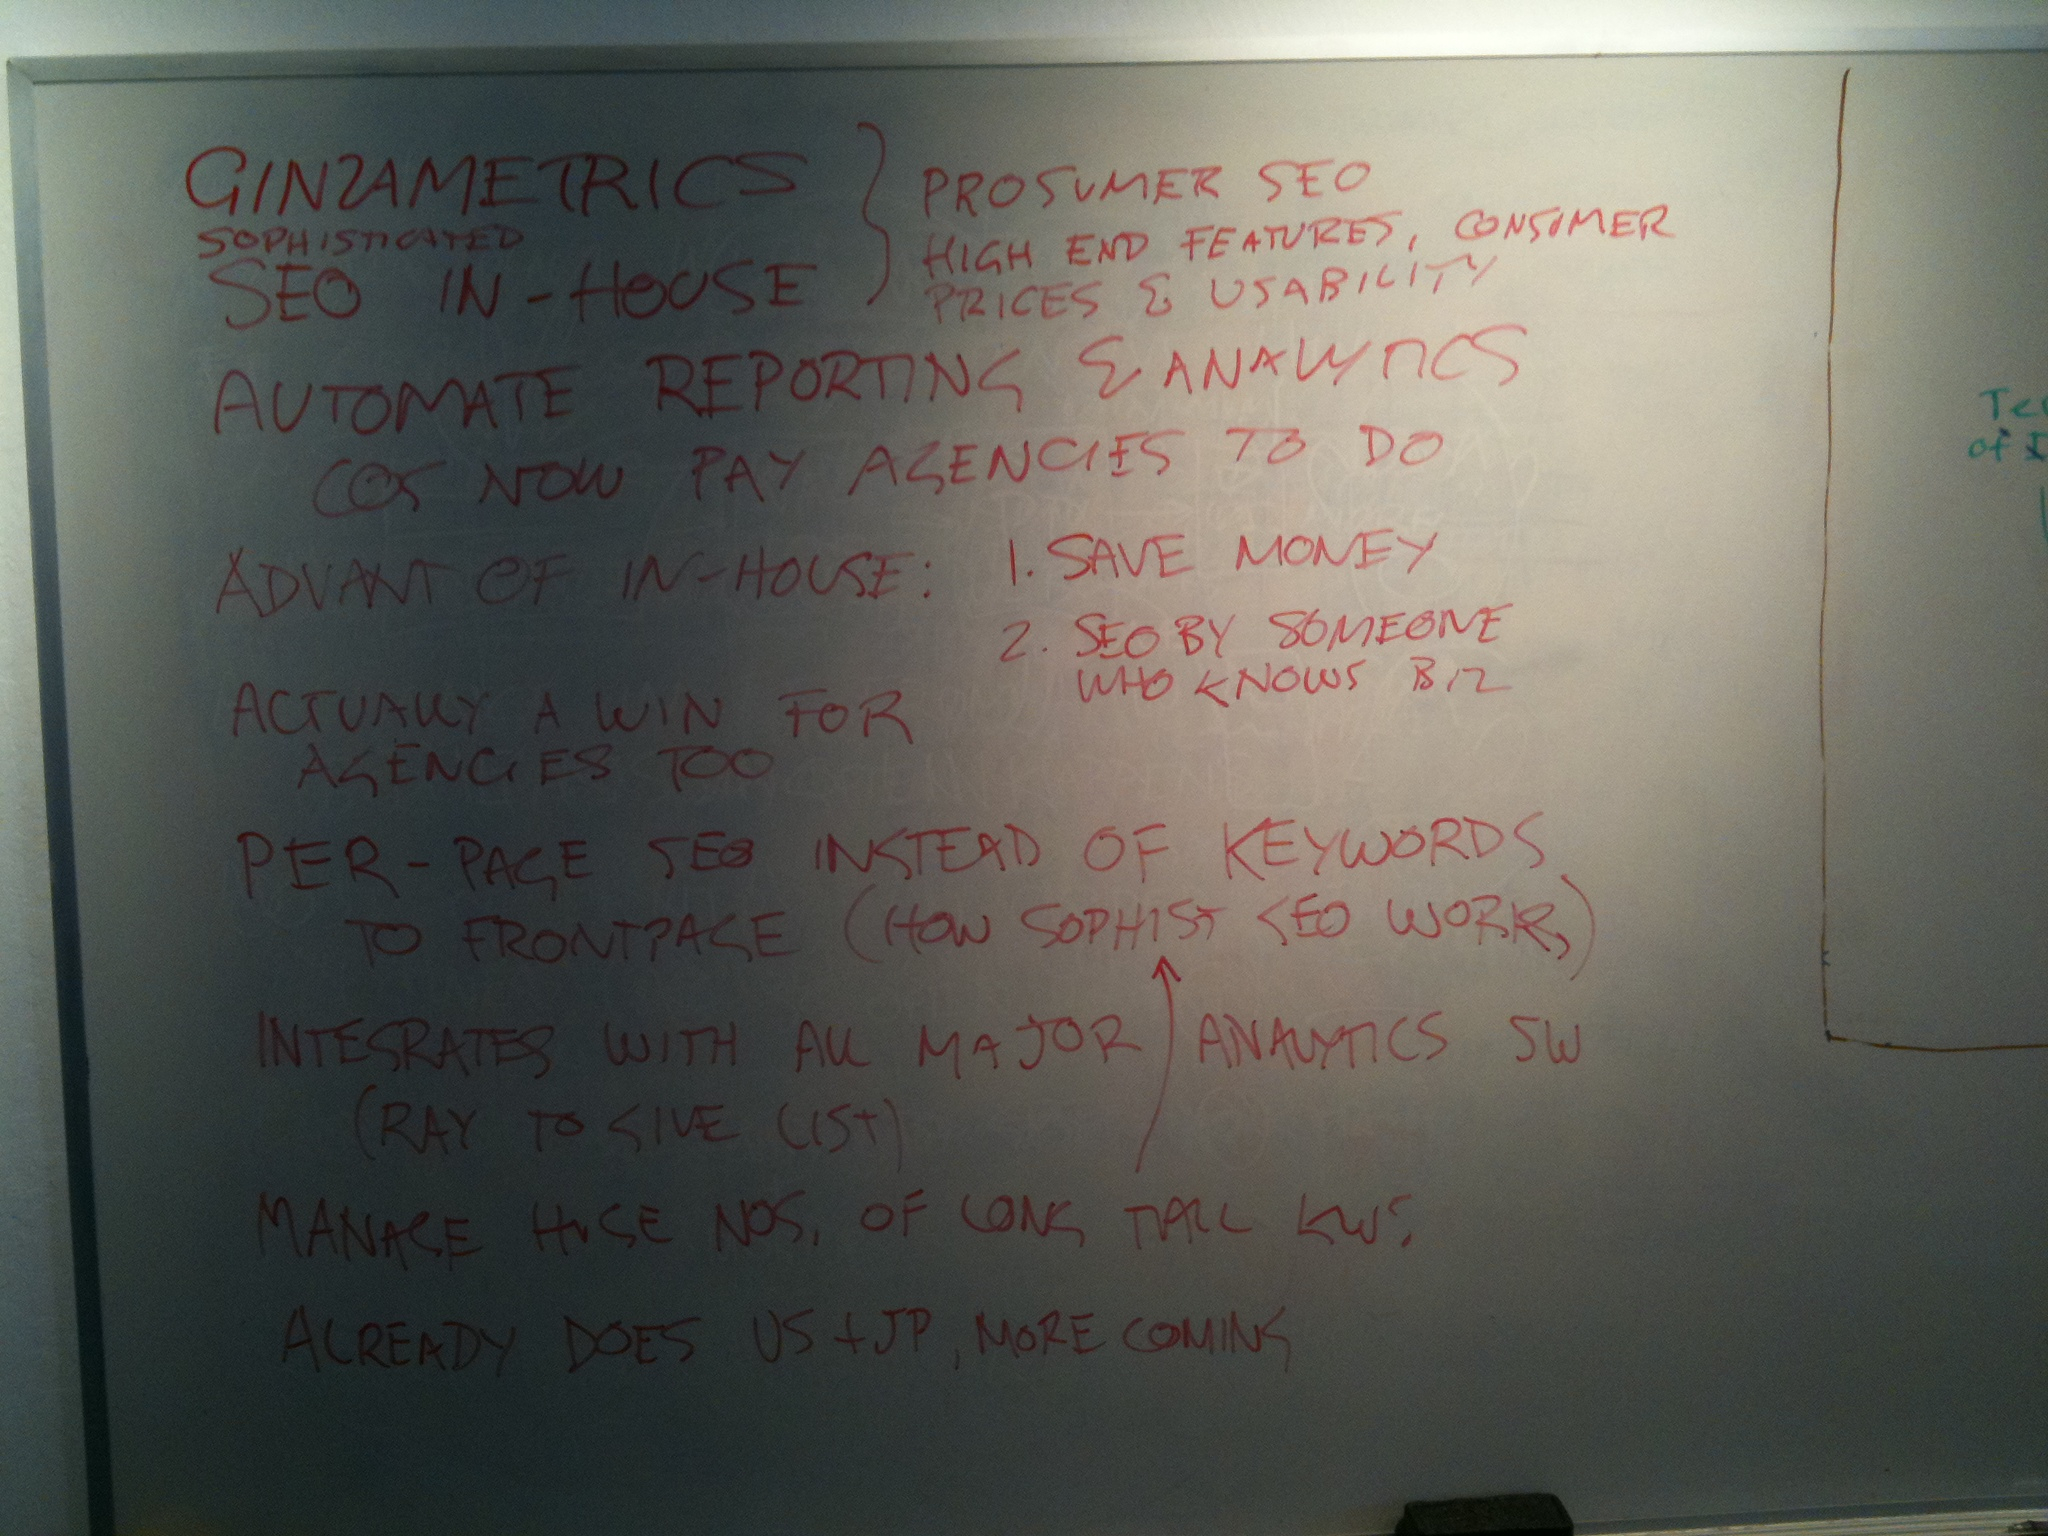 GINZAMETRICS
SOPHISTICATED
SEO IN-HOUSE
PROSUMER SEO
HIGH END FEATURES, CONSUMER
PRICES & USABILITY
AUTOMATE REPORTING & ANALYTICS
COS NOW PAY AGENCIES TO DO
ADVANT OF IN-HOUSE:
1. SAVE MONEY
2. SEO BY SOMEONE
WHO KNOWS BIZ
ACTUALLY A WIN FOR
AGENCIES TOO
PER-PAGE SEO INSTEAD OF KEYWORDS
TO FRONTPAGE (HOW SOPHIST SEO WORKS)
INTEGRATES WITH ALL MAJOR ANALYTICS SW
(RAY TO GIVE LIST)
MANAGE HUGE NOS. OF LONG TAIL KWS
ALREADY DOES US + JP, MORE COMING
of